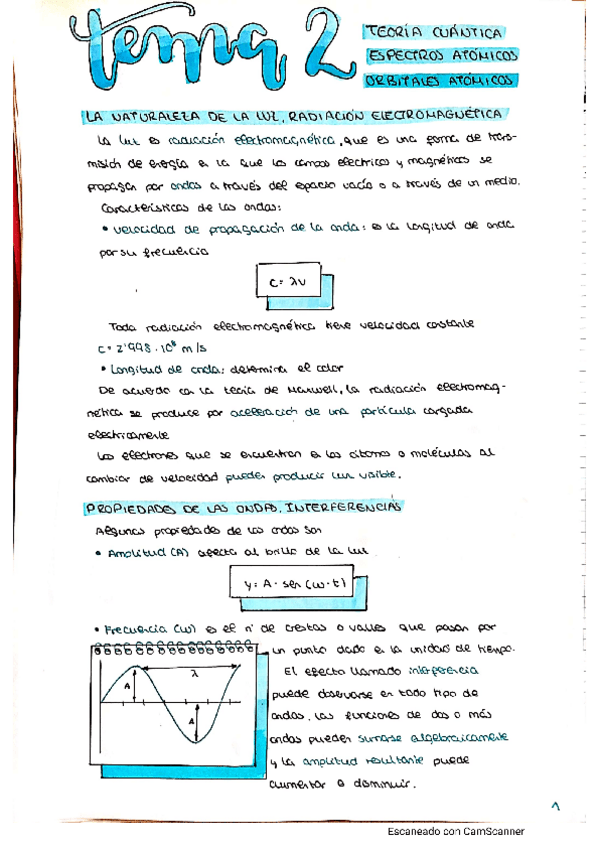 tema 2
TEORÍA CUÁNTICA
ESPECTROS ATÓMICOS
ORBITALES ATÓMICOS
LA NATURALEZA DE LA LUZ, RADIACIÓN ELECTROMAGNÉTICA
La luz es radiación electromagnética, que es una forma de trans-
misión de energía en la que los campos electricos y magnéticos se
propagan por ondas a través del espacio vacío o a través de un medio.
Características de las ondas:
• velocidad de propagación de la onda: es la longitud de onda
por su frecuencia
c = λν
Toda radiación electromagnética tiene velocidad constante
c = 2'998 · 10⁸ m/s
• Longitud de onda: determina el color
De acuerdo con la teoría de Maxwell, la radiación electromag-
nética se produce por aceleración de una partícula cargada
electricamente
Los electrones que se encuentran en los átomos o moléculas al
cambiar de velocidad pueden producir luz visible.
PROPIEDADES DE LAS ONDAS, INTERFERENCIAS
Algunas propiedades de las ondas son
• Amplitud (A) afecta al brillo de la luz
y = A · sen (w · t)
• Frecuencia (w) es el nº de crestas o valles que pasan por
un punto dado en la unidad de tiempo.
λ
A
A
El efecto llamado interferencia
puede observarse en todo tipo de
ondas, las funciones de dos o más
ondas pueden sumarse algebraicamente
y la amplitud resultante puede
aumentar o disminuir.
1
Escaneado con CamScanner